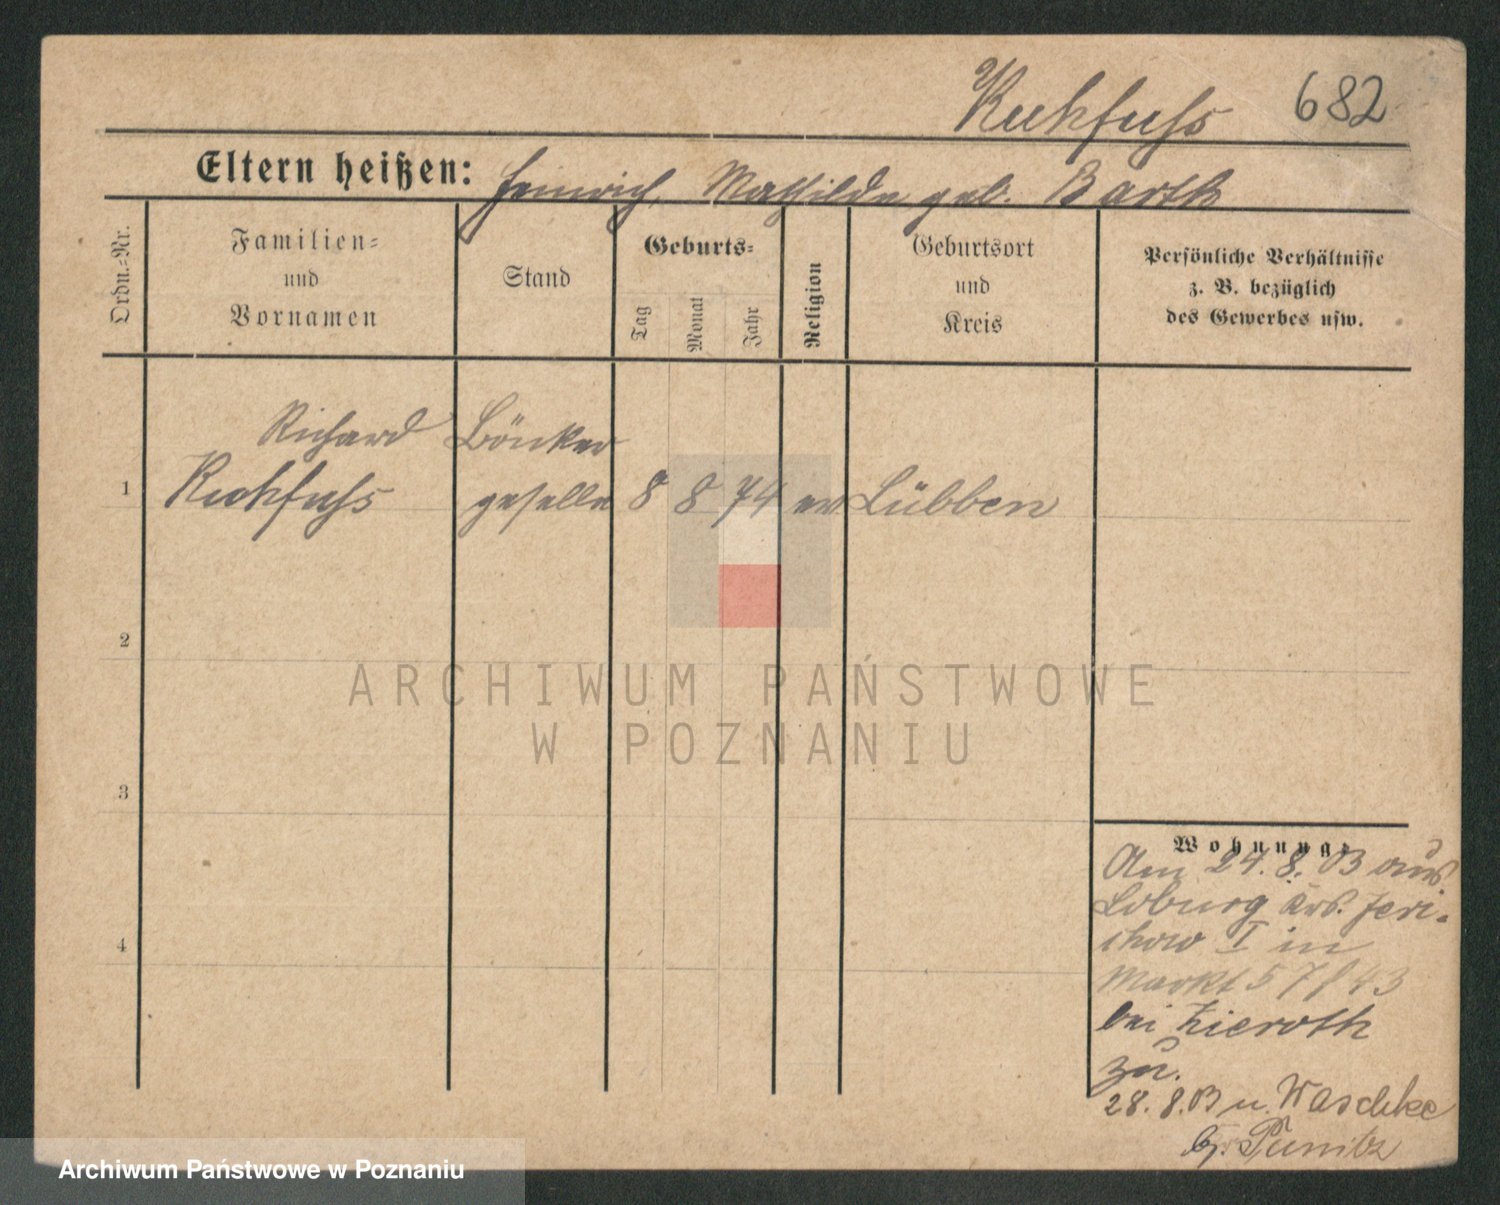 Kuhfuhs 682
Eltern heißen: Heinrich, Mathilde geb. Barth
Ordn.-Nr.
Familien-
und
Vornamen
Stand
Geburts-
Tag
Monat
Jahr
Religion
Geburtsort
und
Kreis
Persönliche Verhältnisse
z. B. bezüglich
des Gewerbes usw.
Richard Bönker
1 Kuhfuhs geselle 8 8 74 ev Lübben
2
3
4
Wohnung:
Am 24.8.03 aus
Loburg Krs. Jeri-
chow I in
Markt 57/43
bei Zieroth
zu.
28.8.03 n. Waschke
b/. Punitz
ARCHIWUM PAŃSTWOWE
W POZNANIU
Archiwum Państwowe w Poznaniu